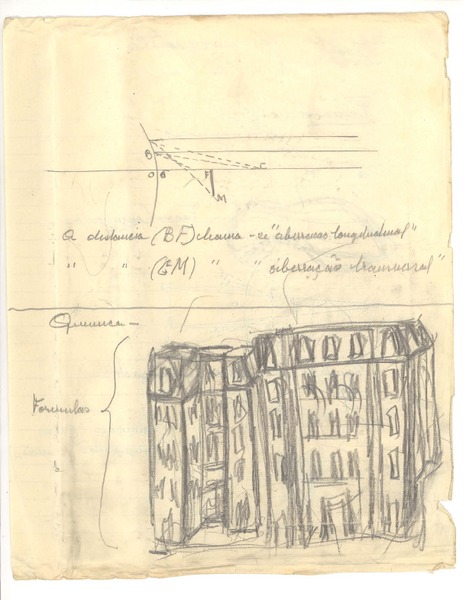 B
O B F C
M
A distancia (BF) chama-se "aberracao longitudinal"
" " (EM) " " aberração transversal"
Quimica -
Formulas {